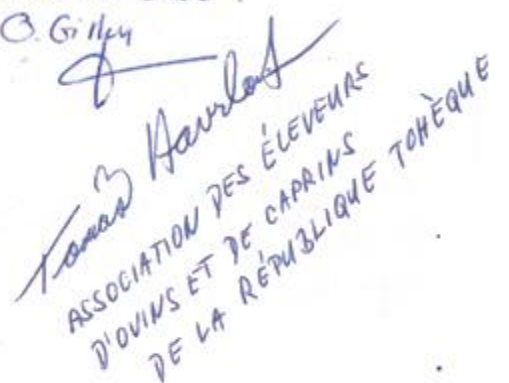 O. Gilley
Tomas Havrlant
ASSOCIATION DES ÉLEVEURS
D'OVINS ET DE CAPRINS
DE LA RÉPUBLIQUE TCHÈQUE